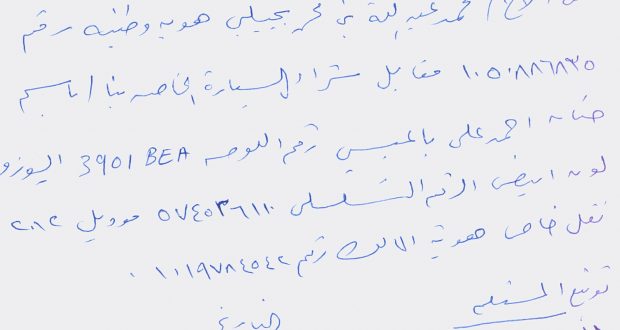 محمد عبد الله بن محمد بجيلي هوية وطنية رقم
١٠٥٠٨٨٦٨٣٥ مقابل شراء السيارة الخاصه بنا / باسم
احمد علي بالعبسي رقم اللوحه 3901 BEA اليوزو
لون ابيض الرقم التسلسلي ٥٧٤٥٣٦١١٠ موديل ٢٠١٢
نقل خاص هوية المالك رقم ١٠١٩٧٨٤٥٤٢.
توقيع المستلم
التاريخ